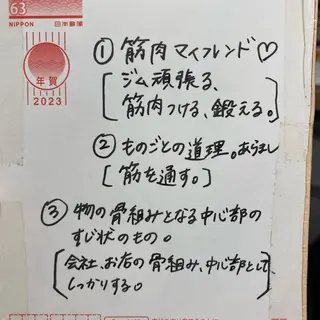 63
NIPPON
日本郵便
年賀
2023
① 筋肉マイフレンド♡
ジム頑張る、
筋肉つける、鍛える。
② ものごとの道理。あらまし
筋を通す。
③ 物の骨組みとなる中心部の
すじ状のもの。
会社、お店の骨組み、中心部として
しっかりする。